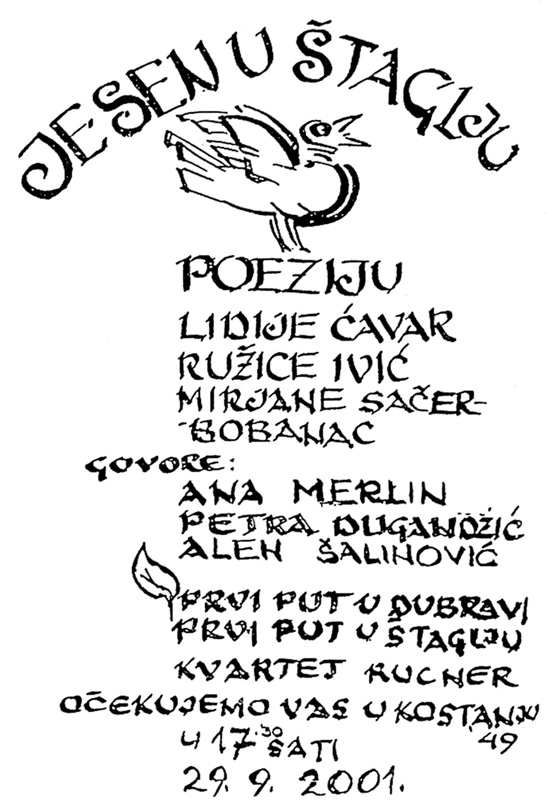 JESEN U ŠTAGLJU
POEZIJU
LIDIJE ĆAVAR
RUŽICE IVIĆ
MIRJANE SAČER-
-BOBANAC
GOVORE:
ANA MERLIN
PETRA DUGANDŽIĆ
ALEN ŠALINOVIĆ
PRVI PUT U DUBRAVI
PRVI PUT U ŠTAGLJU
KVARTET RUCNER
OČEKUJEMO VAS U KOSTANJU
49
U 17.30 SATI
29. 9. 2001.